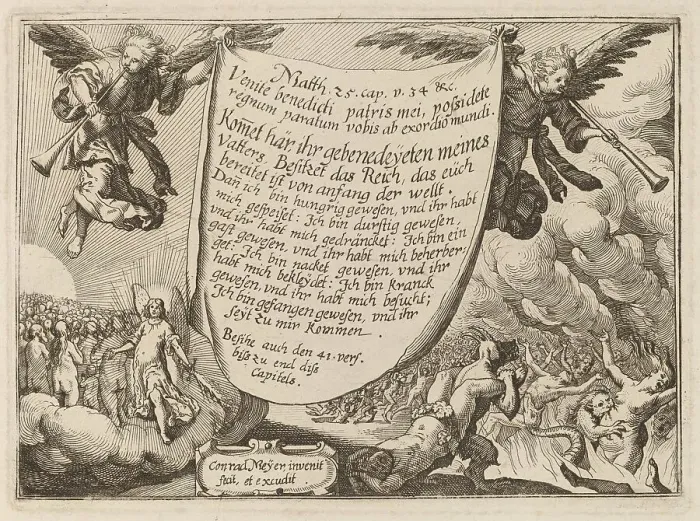 Matth. 25. cap. v. 34 &c.
Venite benedicti patris mei, possidete
regnum paratum vobis ab exordio mundi.
Kom̄et här, ihr gebenedeÿeten meines
Vatters, Besitzet das Reich, das eüch
bereitet ist von anfang der wellt.
Dan̄ ich bin hungrig gewesen, vnd ihr habt
mich gespeiset: Ich bin durstig gewesen,
vnd ihr habt mich gedräncket: Ich bin ein
gast gewesen, vnd ihr habt mich beherber-
get: Ich bin nacket gewesen, vnd ihr
habt mich bekleÿdet: Ich bin kranck
gewesen, vnd ihr habt mich besucht;
Ich bin gefangen gewesen, vnd ihr
seÿt zu mir kommen.
Besihe auch den 41. vers.
biss zu end diss
Capitels.
Conrad Meÿer, invenit
fecit, et excudit.